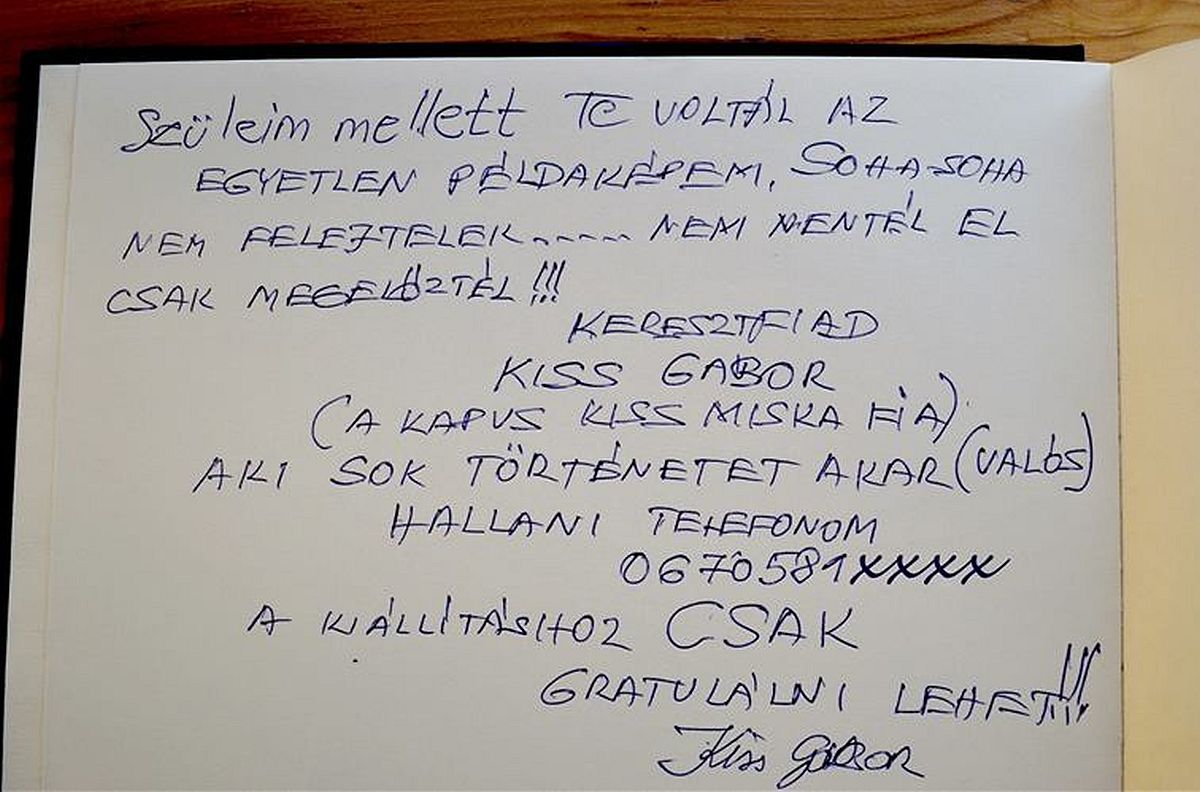 Szüleim mellett TE VOLTÁL AZ
EGYETLEN PÉLDAKÉPEM. SOHA-SOHA
NEM FELEJTELEK----- NEM MENTÉL EL
CSAK MEGELŐZTÉL!!!
KERESZTFIAD
KISS GÁBOR
(A KAPUS KISS MISKA FIA).
AKI SOK TÖRTÉNETET AKAR (VALÓS)
HALLANI TELEFONOM
0670581xxxx
A KIÁLLÍTÁSHOZ CSAK
GRATULÁLNI LEHET!!!
Kiss GÁBOR